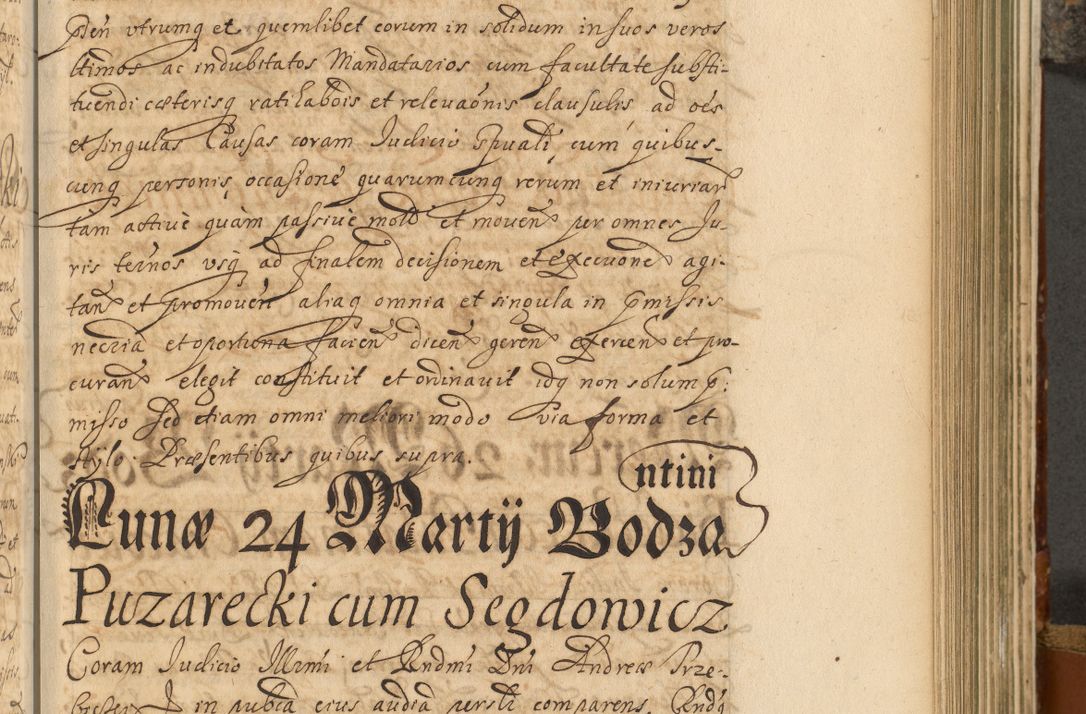 Den̄ vtrumq et quemlibet eorum in solidum in suos veros
ltimos ac indubitatos Mandatarios cum facultate substi-
tuendi cæterisq ratihabōis et relevaōnis clausulis ad oēs
et singulas Causas coram Iudicio Spuali cum quibus-
cunq personis occasione quarumcunq rerum et iniuriar
tam activè quàm passivè mot̄ et moven̄ per omnes Ju-
ris ter̄nos vsq ad finalem decisionem et executione agi-
tan̄ et promoven̄ aliaq omnia et singula in p̄missis
necr̄ia et oportuna facien̄ dicen̄ geren̄ exercen̄ et pro-
curan̄ elegit constituit et ordinavit idq non solum p̄-
misso sed etiam omni meliori modo via forma et
stylo. Præsentibus quibus supra.
ntini
Lunæ 24 Martij Bodza
Puzarecki cum Segdowicz
Coram Iudicio Illrmi et Rndmi Dni Andreæ Trze-
in pub̄ca eius audīa persl̄i comparens Rndq